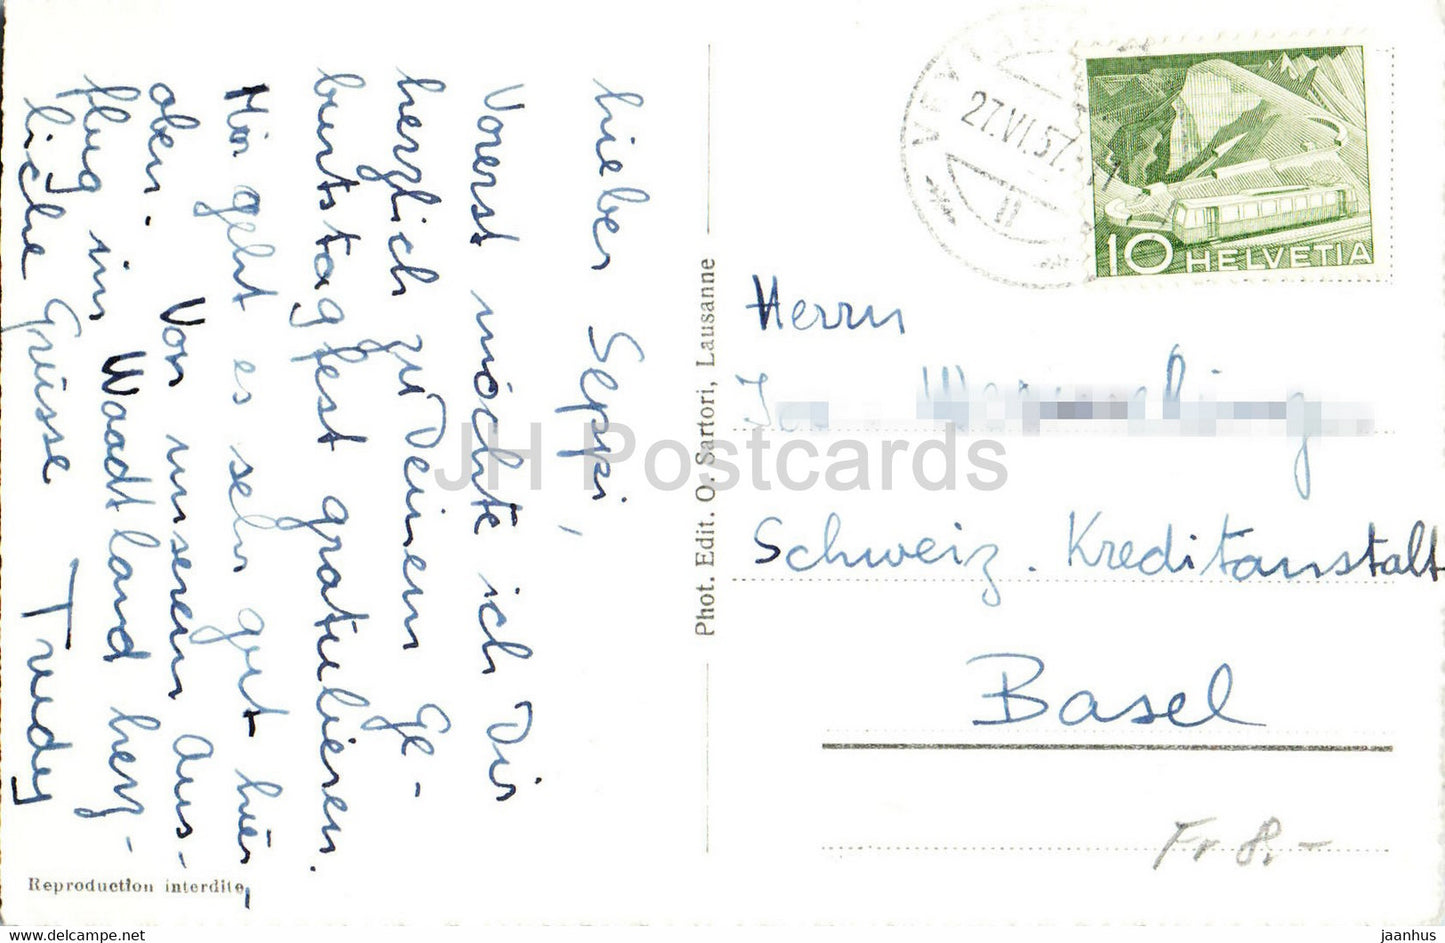 Lieber Seppi,
Vorerst möchte ich Dir
herzlich zu Deinem Ge-
burtstagfest gratulieren.
Hör geht es sehr gut hier
oben. Von unserem Aus-
flug ins Waadtland herz-
liche Grüsse Trudy
Reproduction interdite
Phot. Edit. O. Sartori, Lausanne
27.VI.57
10 HELVETIA
Herrn
Schweiz. Kreditanstalt
Basel
Fr 8.-
JH Postcards
www.delcampe.net
jaanhus